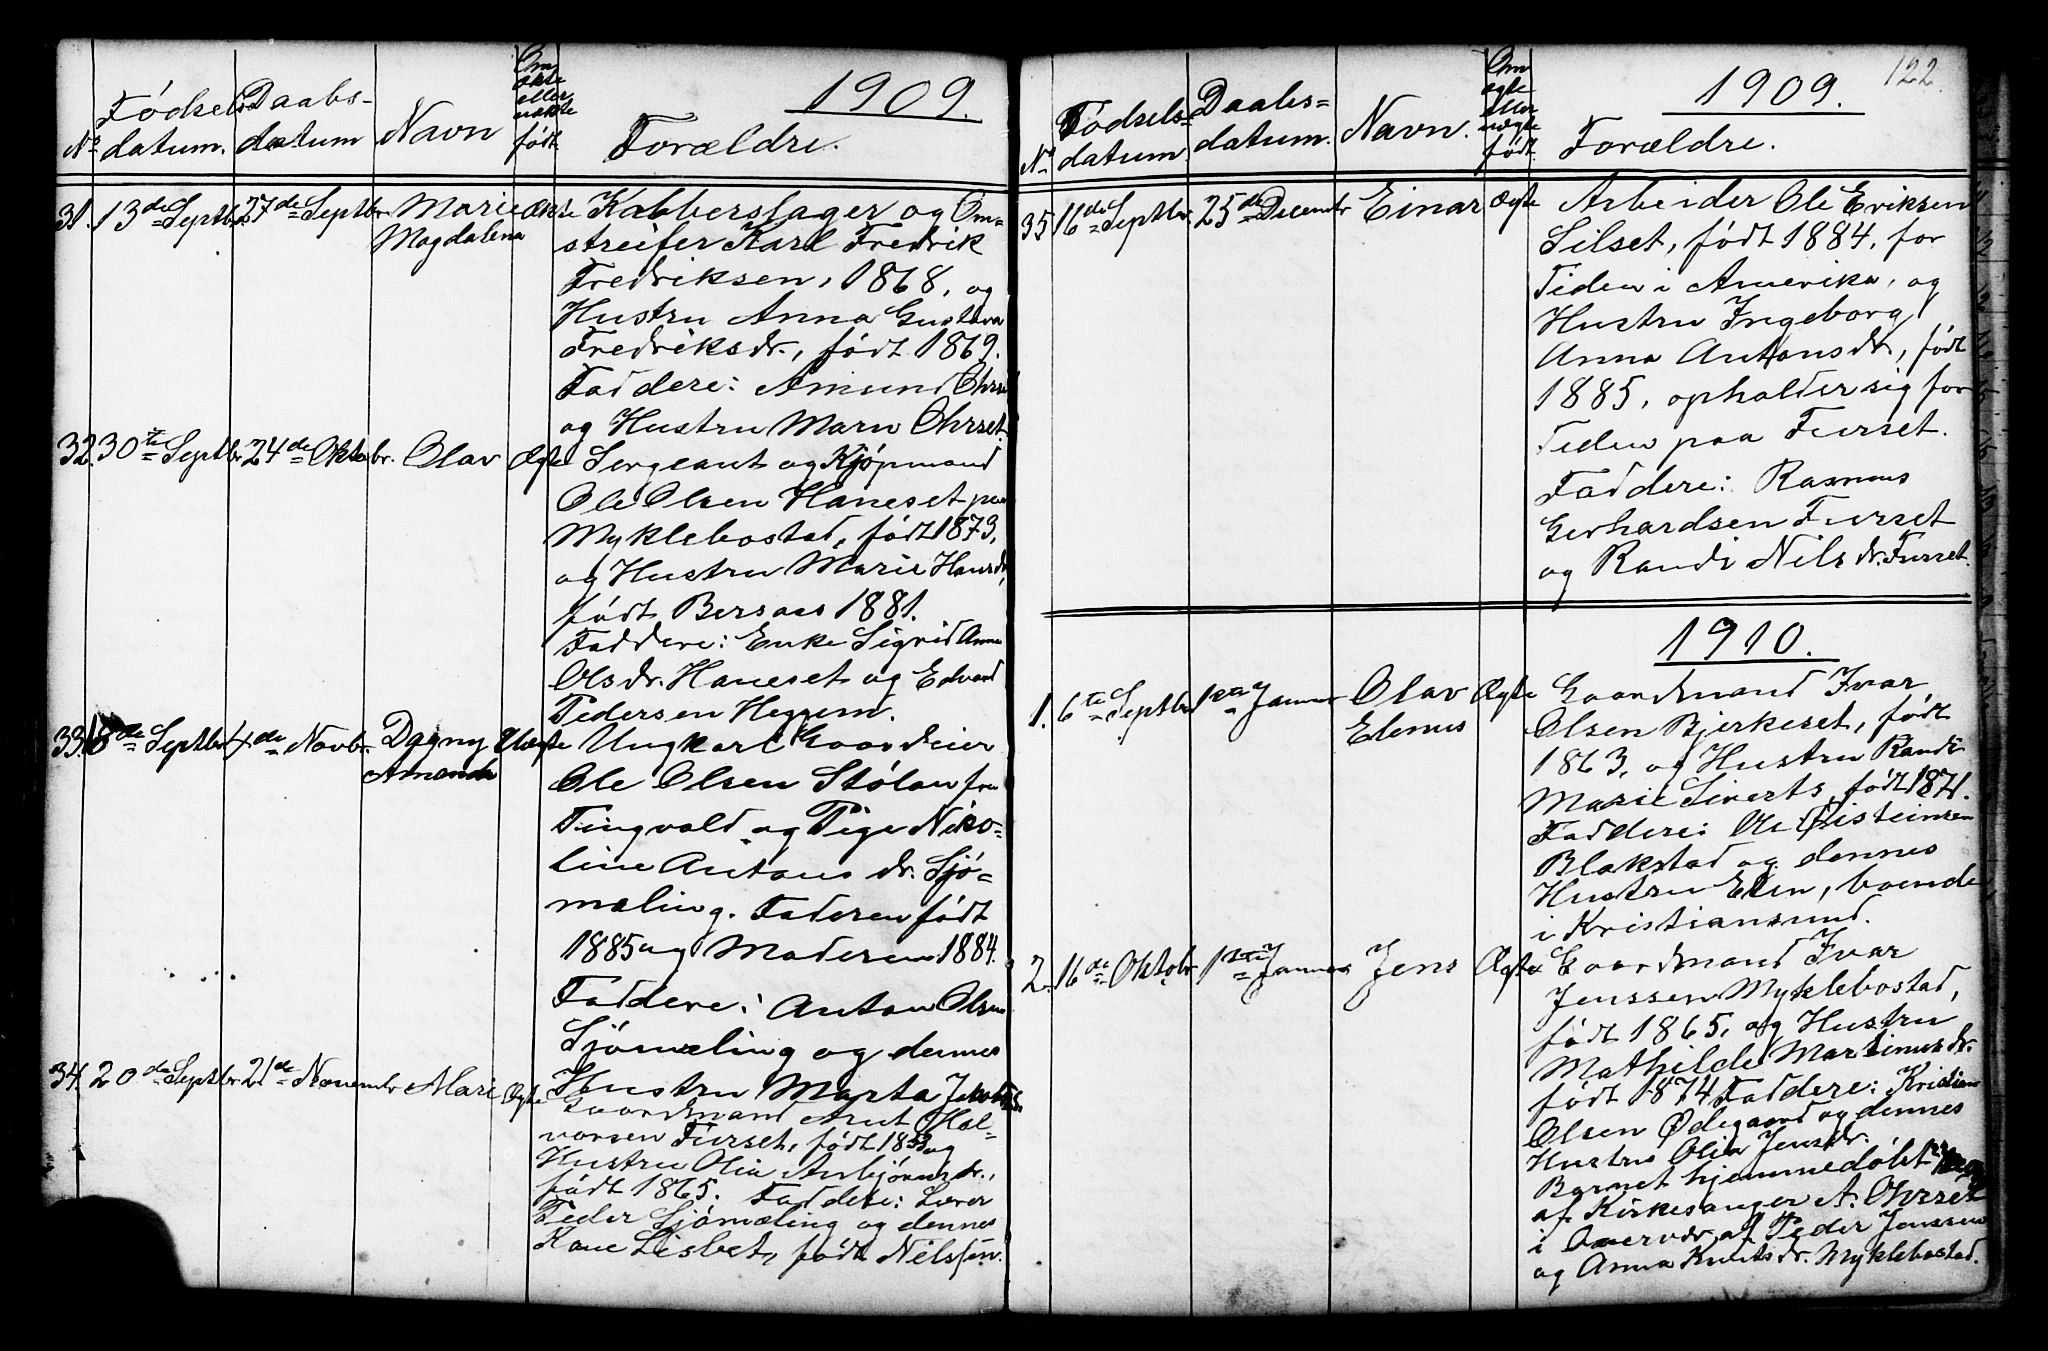 1909.
Nº
Fødsels-
datum.
Daabs-
datum
Navn
Om
ækte
eller
uækte
født.
Forældre.
31. 13de Septbr. 27de Septbr. Marie
Magdalena
Ækte
Kobberslager og Om-
streifer Karl Fredrik
Fredriksen, 1868, og
Hustru Anna Gustava
Fredriksdr., født 1869.
Faddere: Amund Ohrset
og Hustru Maru Ohrset.
32. 30te Septbr. 24de Oktobr. Olav Ægte
Sergeant og Kjøpmand
Ole Olsen Haneset paa
Myklebostad, født 1873,
og Hustru Marie Hansdr,
født Bersaas 1881.
Faddere: Enke Sigrid Anna
Olsdr. Haneset og Edvard
Pedersen Heggem.
33. 18de Septbr. 4de Novbr. Dagny
Amanda
Uægte
Ungkarl Gaardeier
Ole Olsen Stølan fra
Tingvold og Pige Niko-
line Antonsdr. Sjø-
mæling. Faderen født
1885 og Moderen 1884.
Faddere: Anton Olsen
Sjømæling og dennes
Hustru Marta
34. 20de Septbr. 21de Novembr. Mari Ægte
Gaardmand Knut Hal-
vorsen Furset, født 1853 og
Hustru Olia Anbjønsdr.,
født 1865. Faddere: Lærer
Peder Sjømæling og dennes
Kone Lisbet, født Nilssøn.
122.
1909.
Nº
Fødsels-
datum.
Daabs-
datum.
Navn.
Om
ægte
eller
uægte
født.
Forældre.
35 16de Septbr. 25de Decembr Einar Ægte
Arbeider Ole Eriksen
Silset, født 1884, for
Tiden i Amerika, og
Hustru Ingeborg
Anna Antonsdr, født
1885, opholder sig for
Tiden paa Furset.
Faddere: Rasmus
Gerhardsen Furset
og Randi Nilsdr. Furset.
1910.
1. 6te Septbr 1ste Januar Olav
Elenus
Ægte
Gaardmand Ivar
Olsen Bjerkeset, født
1863, og Hustru Randi
Marie Siverts, født 1871.
Faddere: Ole Øisteinsen
Blakstad og dennes
Hustru Elen, boende
i Kristiansund.
2. 16de Oktobr. 1ste Januar Jens Ægte
Gaardmand Ivar
Jenssen Myklebostad,
født 1865, og Hustru
Mathilde Martinusdr.
født 1874 Faddere: Kristian
Olsen Ødegaard og dennes
Hustru Olia Jensdr.
Barnet hjemmedøbt
af Kirkesanger A. Ohrset
i Overvær af Peder Jenssen
og Anna Knutsdr. Myklebostad.